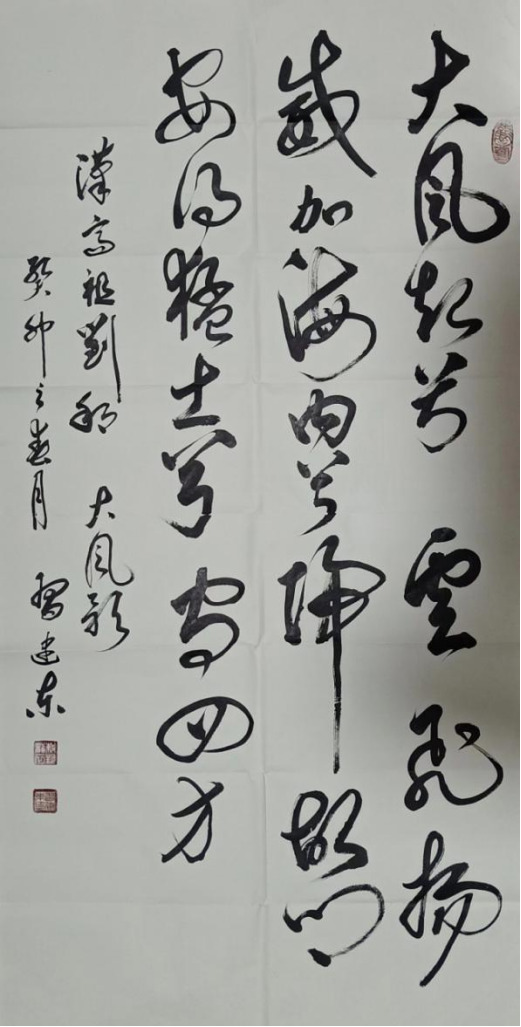 大風起兮 雲飛揚
威加海内兮歸故鄉
安得猛士兮守四方
漢高祖劉邦 大風歌
癸卯之春月 建東